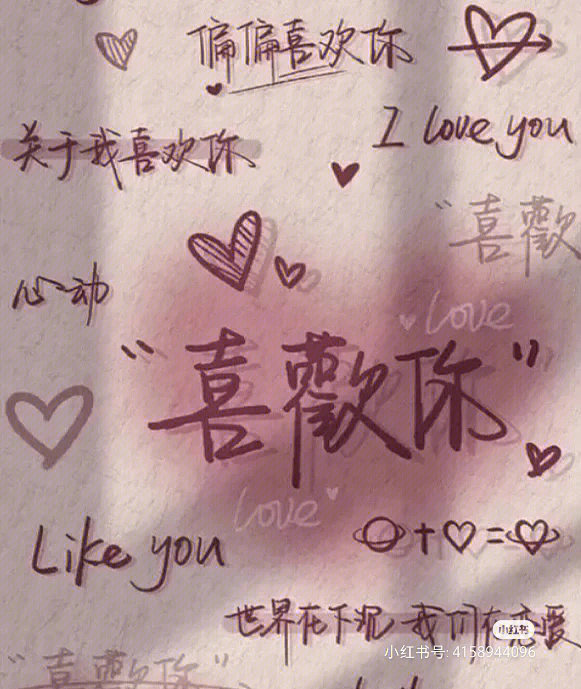 偏偏喜欢你
I love you
关于我喜欢你
"喜歡
心动
love
"喜歡你"
love
Like you
+ = 
世界在下沉 我们在恋爱
小红书
小红书号: 4158944096
"喜歡你"